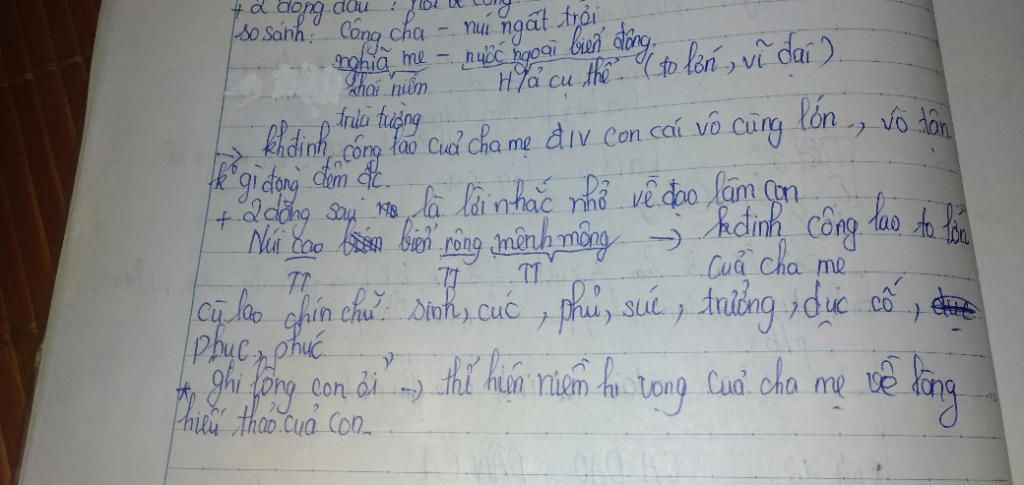 + 2 dòng đầu : nói về công
so sánh: Công cha – núi ngất trời
nghĩa mẹ – nước ngoài biển đông.
khái niệm H/ả cụ thể. (to lớn, vĩ đại)
trừu tượng
→ khđịnh công lao của cha mẹ đ/v con cái vô cùng lớn, vô tận
k° gì đong đếm đc.
+ 2 dòng sau là lời nhắc nhở về đạo làm con
Núi cao biển rộng mênh mông → kđịnh công lao to lớn
TT TT TT của cha mẹ
cù lao chín chữ: sinh, cúc, phủ, súc, trưởng, dục cố,
phục, phúc.
* ghi lòng con ơi" → thể hiện niềm hi vọng của cha mẹ về lòng
hiếu thảo của con.